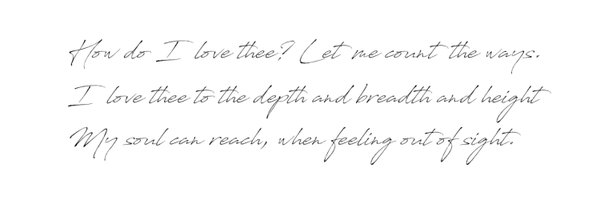 How do I love thee? Let me count the ways.
I love thee to the depth and breadth and height
My soul can reach, when feeling out of sight.